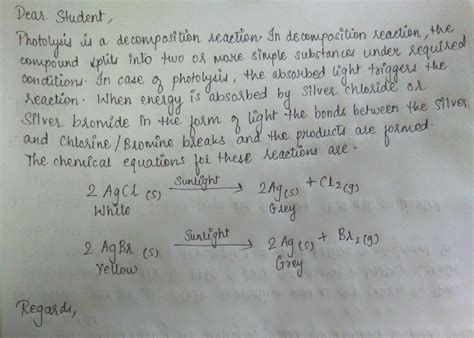 Dear Student,
Photolysis is a decomposition reaction. In decomposition reaction, the
compound splits into two or more simple substances under required
conditions. In case of photolysis, the absorbed light triggers the
reaction. When energy is absorbed by silver chloride or
Silver bromide in the form of light the bonds between the silver
and Chlorine/Bromine breaks and the products are formed.
The chemical equations for these reactions are -
2 AgCl (s) Sunlight → 2Ag(s) + Cl2(g)
White Grey
2 AgBr (s) Sunlight → 2 Ag(s) + Br2(g)
Yellow Grey
Regards,